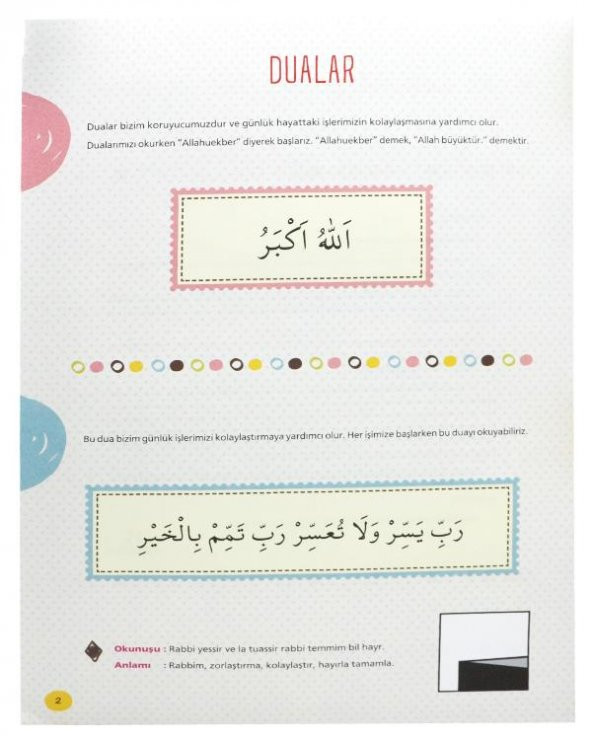 DUALAR
Dualar bizim koruyucumuzdur ve günlük hayattaki işlerimizin kolaylaşmasına yardımcı olur.
Dualarımızı okurken "Allahuekber" diyerek başlarız. "Allahuekber" demek, "Allah büyüktür." demektir.
اَللّٰهُ اَكْبَرُ
Bu dua bizim günlük işlerimizi kolaylaştırmaya yardımcı olur. Her işimize başlarken bu duayı okuyabiliriz.
رَبِّ يَسِّرْ وَلَا تُعَسِّرْ رَبِّ تَمِّمْ بِالْخَيْرِ
Okunuşu : Rabbi yessir ve la tuassir rabbi temmim bil hayr.
Anlamı : Rabbim, zorlaştırma, kolaylaştır, hayırla tamamla.
2